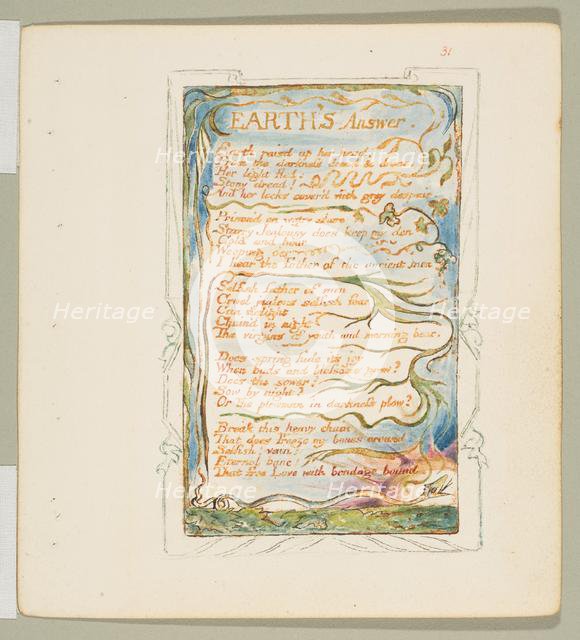 31
EARTH'S Answer.
Earth raised up her head,
From the darkness dread & drear.
Her light fled:
Stony dread!
And her locks cover'd with grey despair.
Prison'd on watry shore
Starry Jealousy does keep my den
Cold and hoar
Weeping o'er
I hear the Father of the ancient men
Selfish father of men
Cruel jealous selfish fear
Can delight
Chain'd in night
The virgins of youth and morning bear.
Does spring hide its joy
When buds and blossoms grow?
Does the sower?
Sow by night?
Or the plowman in darkness plow?
Break this heavy chain
That does freeze my bones around
Selfish! vain!
Eternal bane!
That free Love with bondage bound
Heritage Heritage Heritage
Heritage Heritage Heritage
Heritage Heritage